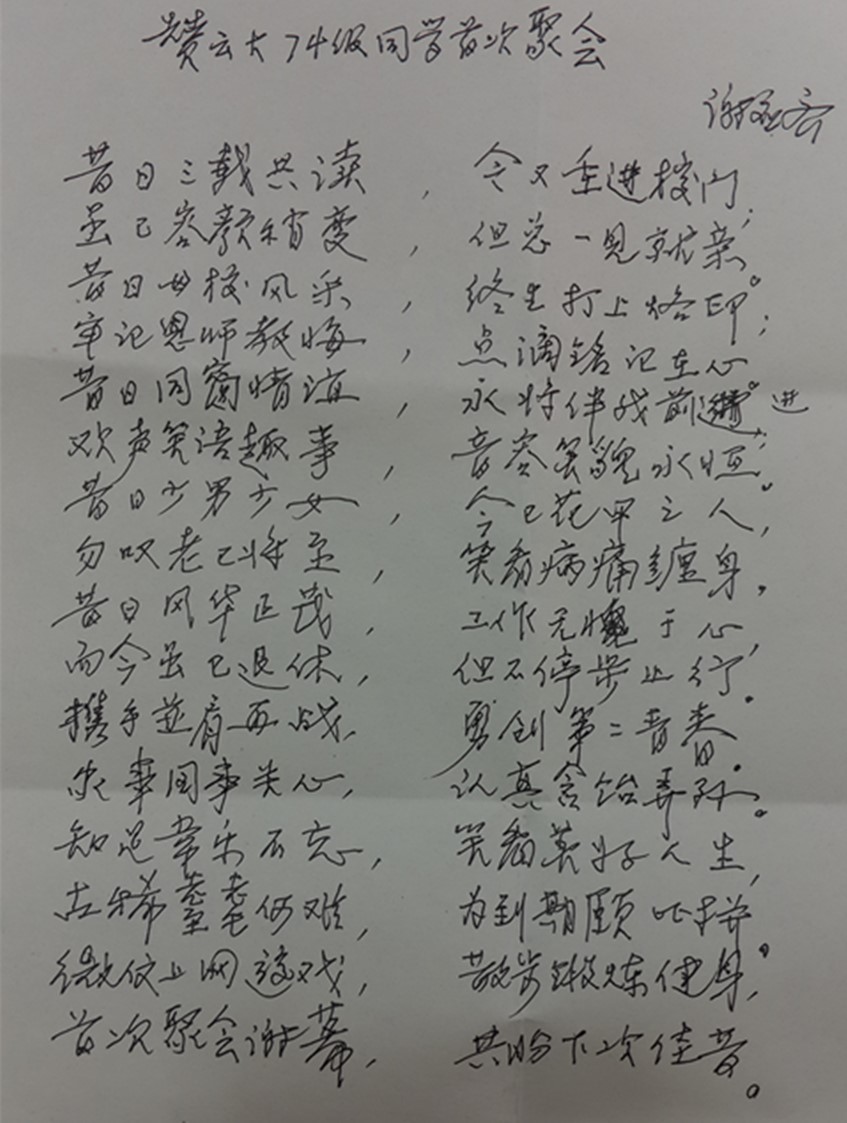 赞云大74级同学首次聚会
谢
昔日三载共读，今又重进校门；
虽已容颜稍变，但总一见就亲。
昔日母校风采，终生打上烙印；
牢记恩师教悔，点滴铭记在心。
昔日同窗情谊，永将伴我前进
欢声笑语趣事，音容笑貌永恒。
昔日少男少女，今已花甲之人，
勿叹老已将至，笑看病痛缠身。
昔日风华正茂，工作无愧于心，
而今虽已退休，但不停步止行。
携手並肩再战，勇创第二青春。
家事国事关心，认真含饴弄孙。
知足常乐不忘，笑看美好人生，
古稀耄耋何难，为到期颐吐拼，
微信上网游戏，散步锻炼健身，
首次聚会谢幕，共盼下次佳音。